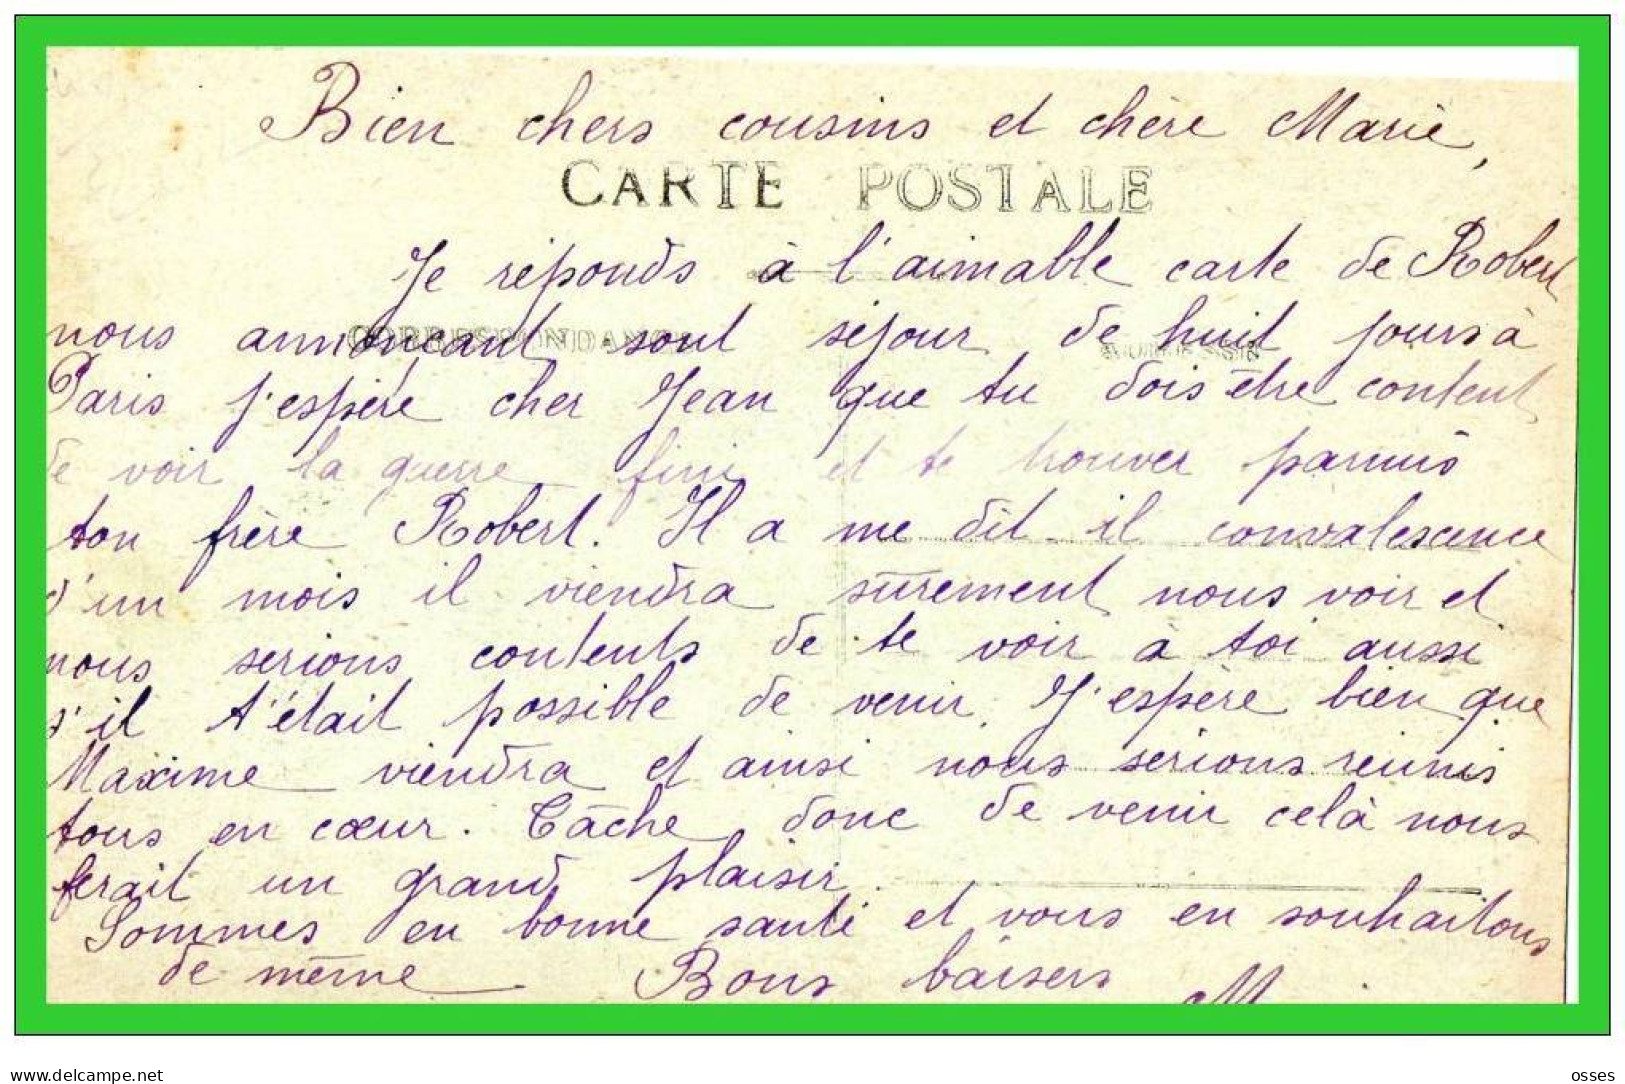 Bien chers cousins et chère Marie,
CARTE POSTALE
Je réponds à l'aimable carte de Robert
CORRESPONDANCE
nous annoncant sont séjour de huit jours à
Paris j'espère cher Jean que tu dois être content
de voir la guerre fini et te trouver parmis
ton frère Robert. Il a me dit-il convalescence
d'un mois il viendra sûrement nous voir et
nous serions contents de te voir à toi aussi
s'il t'était possible de venir. J'espère bien que
Maxime viendra et ainsi nous serions reunis
tous en cœur. Tâche donc de venir celà nous
ferait un grand plaisir.
Sommes en bonne santé et vous en souhaitons
de même Bons baisers
www.delcampe.net osses